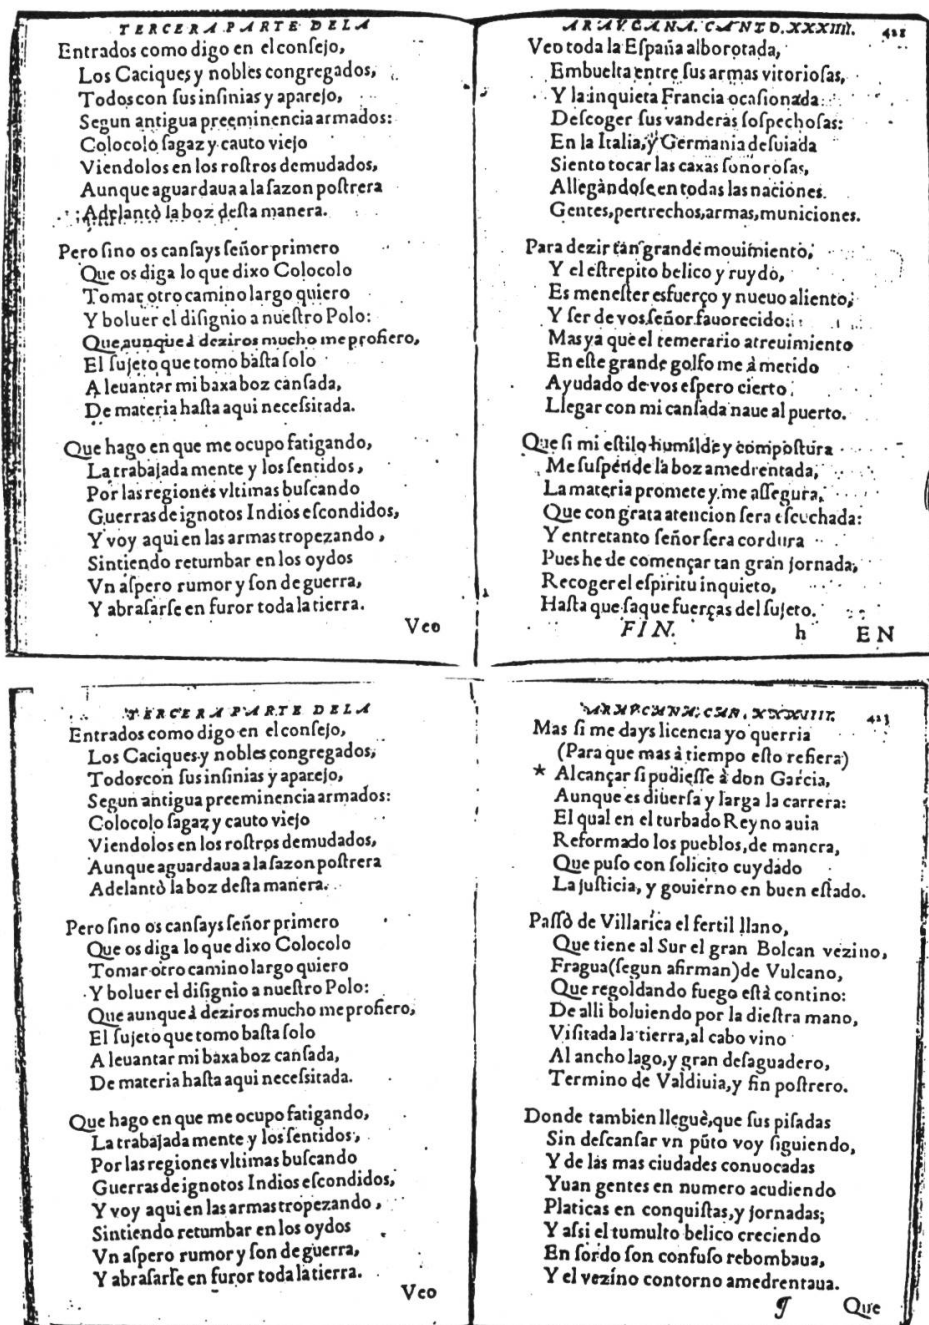 TERCERA PARTE DE LA
Entrados como digo en el conſejo,
Los Caciques y nobles congregados,
Todos con ſus inſinias y aparejo,
Segun antigua preeminencia armados:
Colocolo ſagaz y cauto viejo
Viendolos en los roſtros demudados,
Aunque aguardaua a la ſazon poſtrera
Adelantò la boz deſta manera.
Pero ſino os canſays ſeñor primero
Que os diga lo que dixo Colocolo
Tomar otro camino largo quiero
Y boluer el diſignio a nueſtro Polo:
Que aunque à deziros mucho me profiero,
El ſujeto que tomo baſta ſolo
A leuantar mi baxa boz canſada,
De materia haſta aqui neceſsitada.
Que hago en que me ocupo fatigando,
La trabajada mente y los ſentidos,
Por las regiones vltimas buſcando
Guerras de ignotos Indios eſcondidos,
Y voy aqui en las armas tropezando,
Sintiendo retumbar en los oydos
Vn aſpero rumor y ſon de guerra,
Y abraſarſe en furor toda la tierra.
Veo
ARAVCANA. CANTO. XXXIIII. 421
Veo toda la Eſpaña alborotada,
Embuelta entre ſus armas vitorioſas,
Y la inquieta Francia ocaſionada
Deſcoger ſus vanderas ſoſpechoſas:
En la Italia, y Germania deſuiada
Siento tocar las caxas ſonoroſas,
Allegàndoſe en todas las naciones.
Gentes, pertrechos, armas, municiones.
Para dezir tan grande mouimiento,
Y el eſtrepito belico y ruydo,
Es meneſter esfuerço y nueuo aliento,
Y ſer de vos ſeñor fauorecido:
Mas ya que el temerario atreuimiento
En eſte grande golfo me à metido
Ayudado de vos eſpero cierto
Llegar con mi canſada naue al puerto.
Que ſi mi eſtilo humilde y compoſtura
Me ſuſpende la boz amedrentada,
La materia promete y me aſſegura,
Que con grata atencion ſera eſcuchada:
Y entretanto ſeñor ſera cordura
Pues he de començar tan gran jornada,
Recoger el eſpiritu inquieto,
Haſta que ſaque fuerças del ſujeto.
FIN. h EN
TERCERA PARTE DE LA
Entrados como digo en el conſejo,
Los Caciques y nobles congregados,
Todos con ſus inſinias y aparejo,
Segun antigua preeminencia armados:
Colocolo ſagaz y cauto viejo
Viendolos en los roſtros demudados,
Aunque aguardaua a la ſazon poſtrera
Adelantò la boz deſta manera.
Pero ſino os canſays ſeñor primero
Que os diga lo que dixo Colocolo
Tomar otro camino largo quiero
Y boluer el diſignio a nueſtro Polo:
Que aunque à deziros mucho me profiero,
El ſujeto que tomo baſta ſolo
A leuantar mi baxa boz canſada,
De materia haſta aqui neceſsitada.
Que hago en que me ocupo fatigando,
La trabajada mente y los ſentidos,
Por las regiones vltimas buſcando
Guerras de ignotos Indios eſcondidos,
Y voy aqui en las armas tropezando,
Sintiendo retumbar en los oydos
Vn aſpero rumor y ſon de guerra,
Y abraſarſe en furor toda la tierra.
Veo
XXXIIII. 423
Mas ſi me days licencia yo querria
(Para que mas à tiempo eſto refiera)
* Alcançar ſi pudieſſe à don Garcia,
Aunque es diuerſa y larga la carrera:
El qual en el turbado Reyno auia
Reformado los pueblos, de manera,
Que puſo con ſolicito cuydado
La juſticia, y gouierno en buen eſtado.
Paſſò de Villarica el fertil llano,
Que tiene al Sur el gran Bolcan vezino,
Fragua (ſegun afirman) de Vulcano,
Que regoldando fuego eſtà contino:
De alli boluiendo por la dieſtra mano,
Viſitada la tierra, al cabo vino
Al ancho lago, y gran deſaguadero,
Termino de Valdiuia, y fin poſtrero.
Donde tambien lleguè, que ſus piſadas
Sin deſcanſar vn pũto voy ſiguiendo,
Y de las mas ciudades conuocadas
Yuan gentes en numero acudiendo
Platicas en conquiſtas, y jornadas;
Y aſsi el tumulto belico creciendo
En ſordo ſon confuſo rebombaua,
Y el vezino contorno amedrentaua.
¶ Que